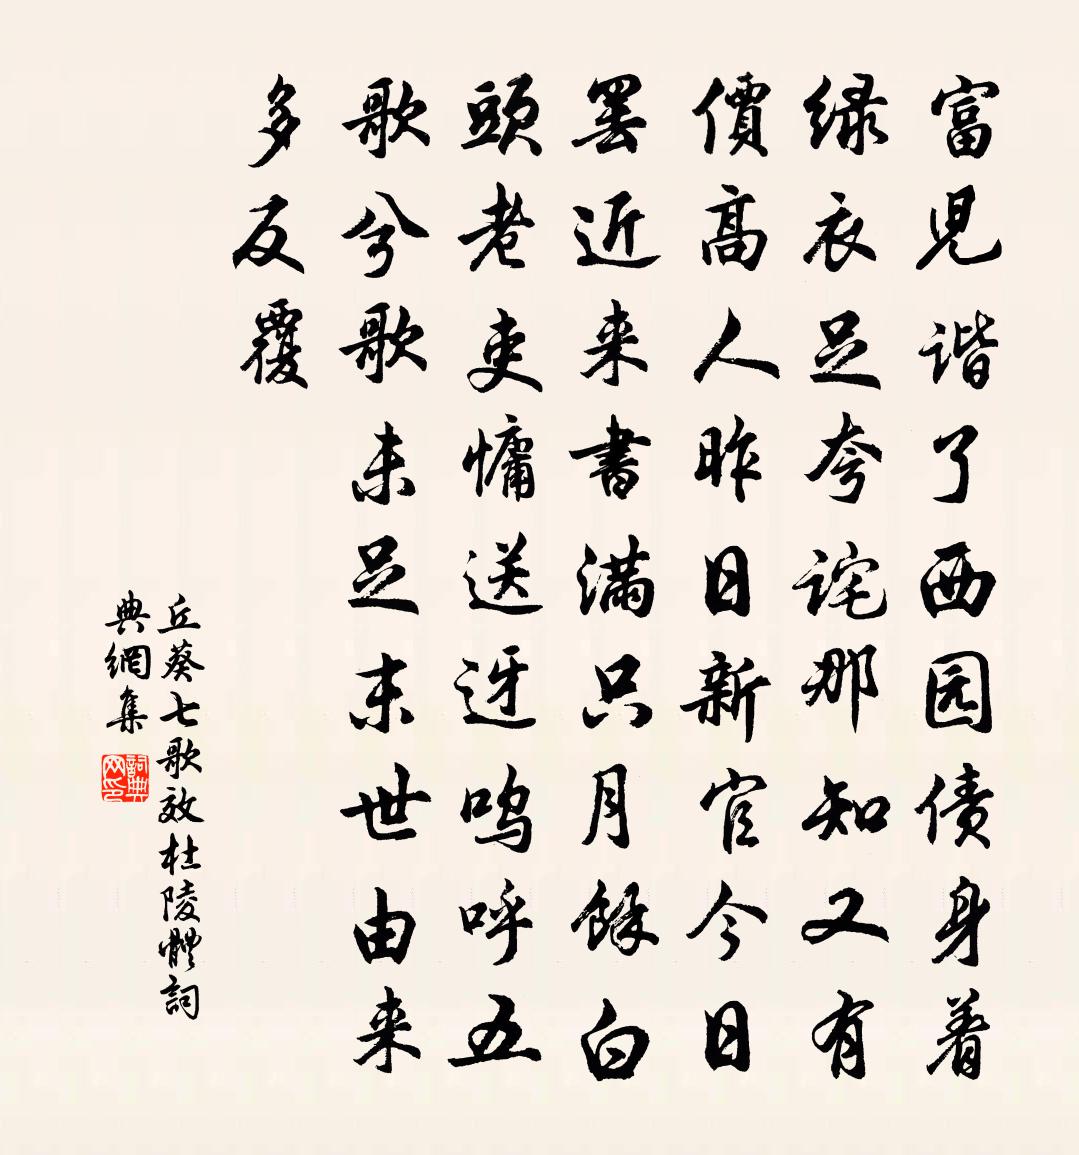 富児谐了西园债身着
緑衣足夸詫那知又有
價髙人昨日新官今日
罢近来書满只月餘白
頭老吏慵送迓鸣呼五
歌兮歌未足末世由来
多反覆
丘葵七歌效杜陵體詞
典網集
詞典网印